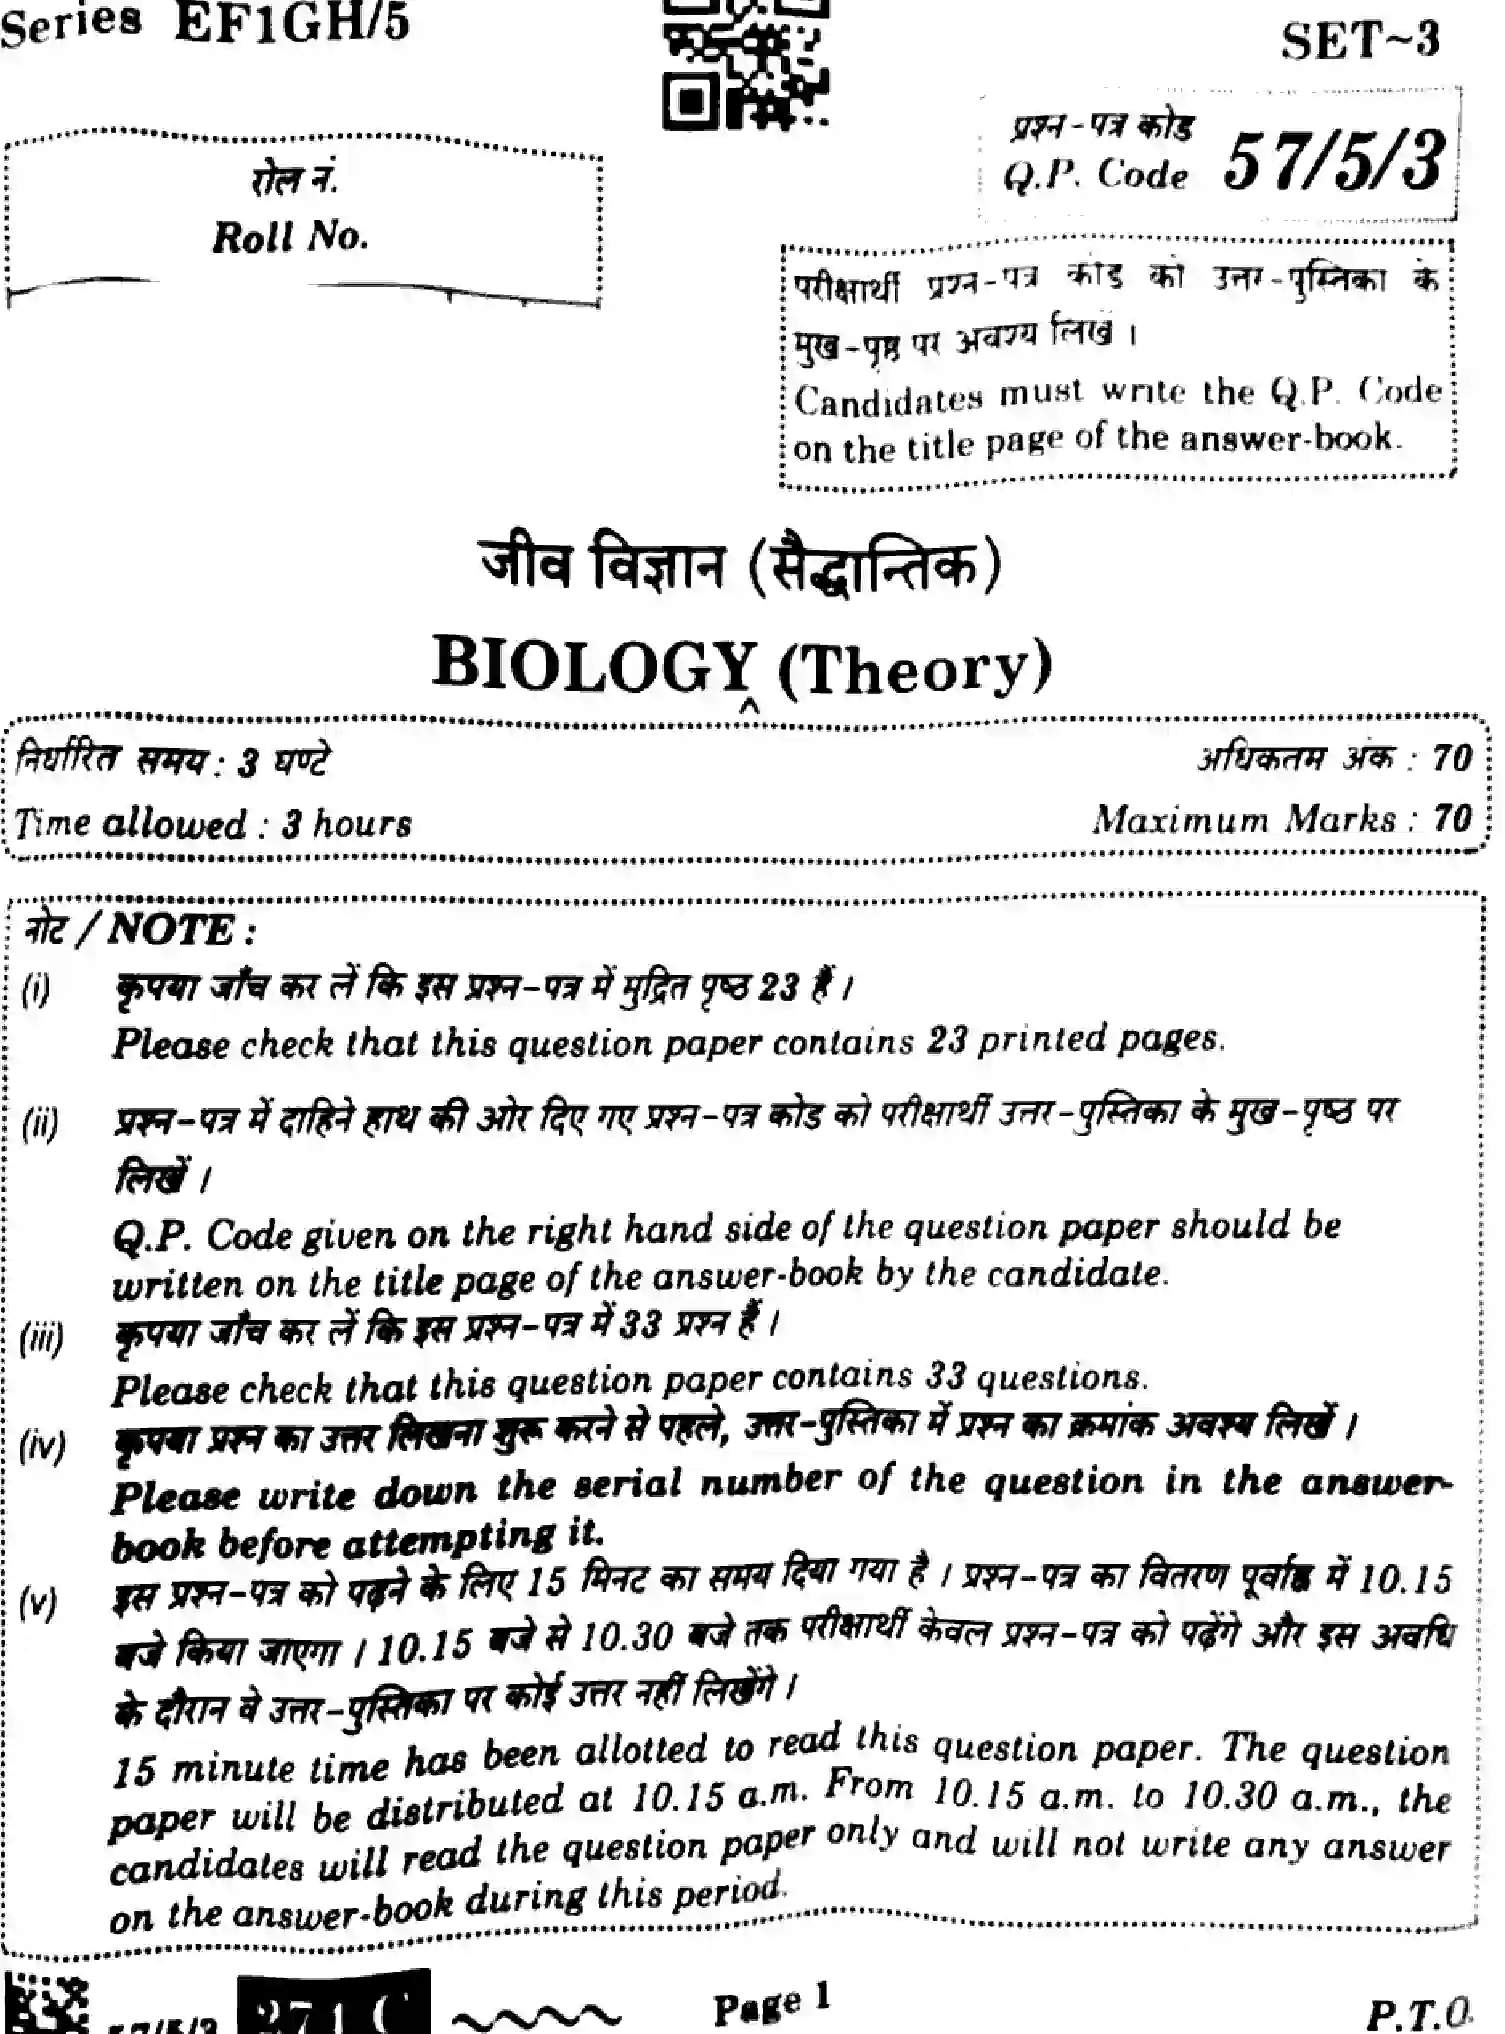 Series EF1GH/5
SET~3
रोल नं.
Roll No.
प्रश्न-पत्र कोड
Q.P. Code 57/5/3
परीक्षार्थी प्रश्न-पत्र कोड को उत्तर-पुस्तिका के
मुख-पृष्ठ पर अवश्य लिखें ।
Candidates must write the Q.P. Code
on the title page of the answer-book.
जीव विज्ञान (सैद्धान्तिक)
BIOLOGY (Theory)
निर्धारित समय : 3 घण्टे
अधिकतम अंक : 70
Time allowed : 3 hours
Maximum Marks : 70
नोट / NOTE :
(i) कृपया जाँच कर लें कि इस प्रश्न-पत्र में मुद्रित पृष्ठ 23 हैं ।
Please check that this question paper contains 23 printed pages.
(ii) प्रश्न-पत्र में दाहिने हाथ की ओर दिए गए प्रश्न-पत्र कोड को परीक्षार्थी उत्तर-पुस्तिका के मुख-पृष्ठ पर
लिखें ।
Q.P. Code given on the right hand side of the question paper should be
written on the title page of the answer-book by the candidate.
(iii) कृपया जाँच कर लें कि इस प्रश्न-पत्र में 33 प्रश्न हैं ।
Please check that this question paper contains 33 questions.
(iv) कृपया प्रश्न का उत्तर लिखना शुरू करने से पहले, उत्तर-पुस्तिका में प्रश्न का क्रमांक अवश्य लिखें ।
Please write down the serial number of the question in the answer-
book before attempting it.
(v) इस प्रश्न-पत्र को पढ़ने के लिए 15 मिनट का समय दिया गया है । प्रश्न-पत्र का वितरण पूर्वाह्न में 10.15
बजे किया जाएगा । 10.15 बजे से 10.30 बजे तक परीक्षार्थी केवल प्रश्न-पत्र को पढ़ेंगे और इस अवधि
के दौरान वे उत्तर-पुस्तिका पर कोई उत्तर नहीं लिखेंगे ।
15 minute time has been allotted to read this question paper. The question
paper will be distributed at 10.15 a.m. From 10.15 a.m. to 10.30 a.m., the
candidates will read the question paper only and will not write any answer
on the answer-book during this period.
57/5/3
Page 1
P.T.O.